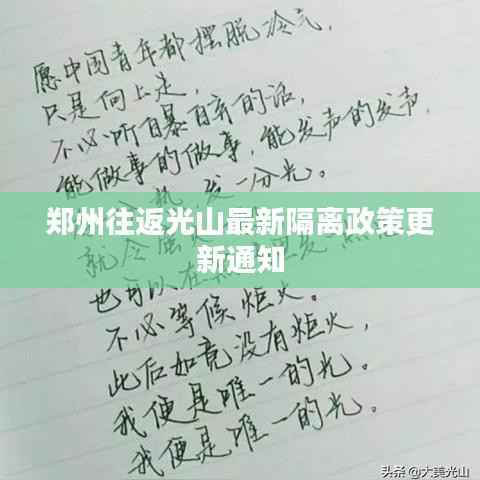 愿中国青年都摆脱冷气,
只是向上走,
不必听自暴自弃的话,
能做事的做事,能发声的发声,
热,发一分光。
郑州往返光山最新隔离政策更
新通知
就令萤
也可以在
不必等候炬火。
此后如竟没有炬火,
我便是唯一的光。
我便是唯一的光。
头条@大美光山